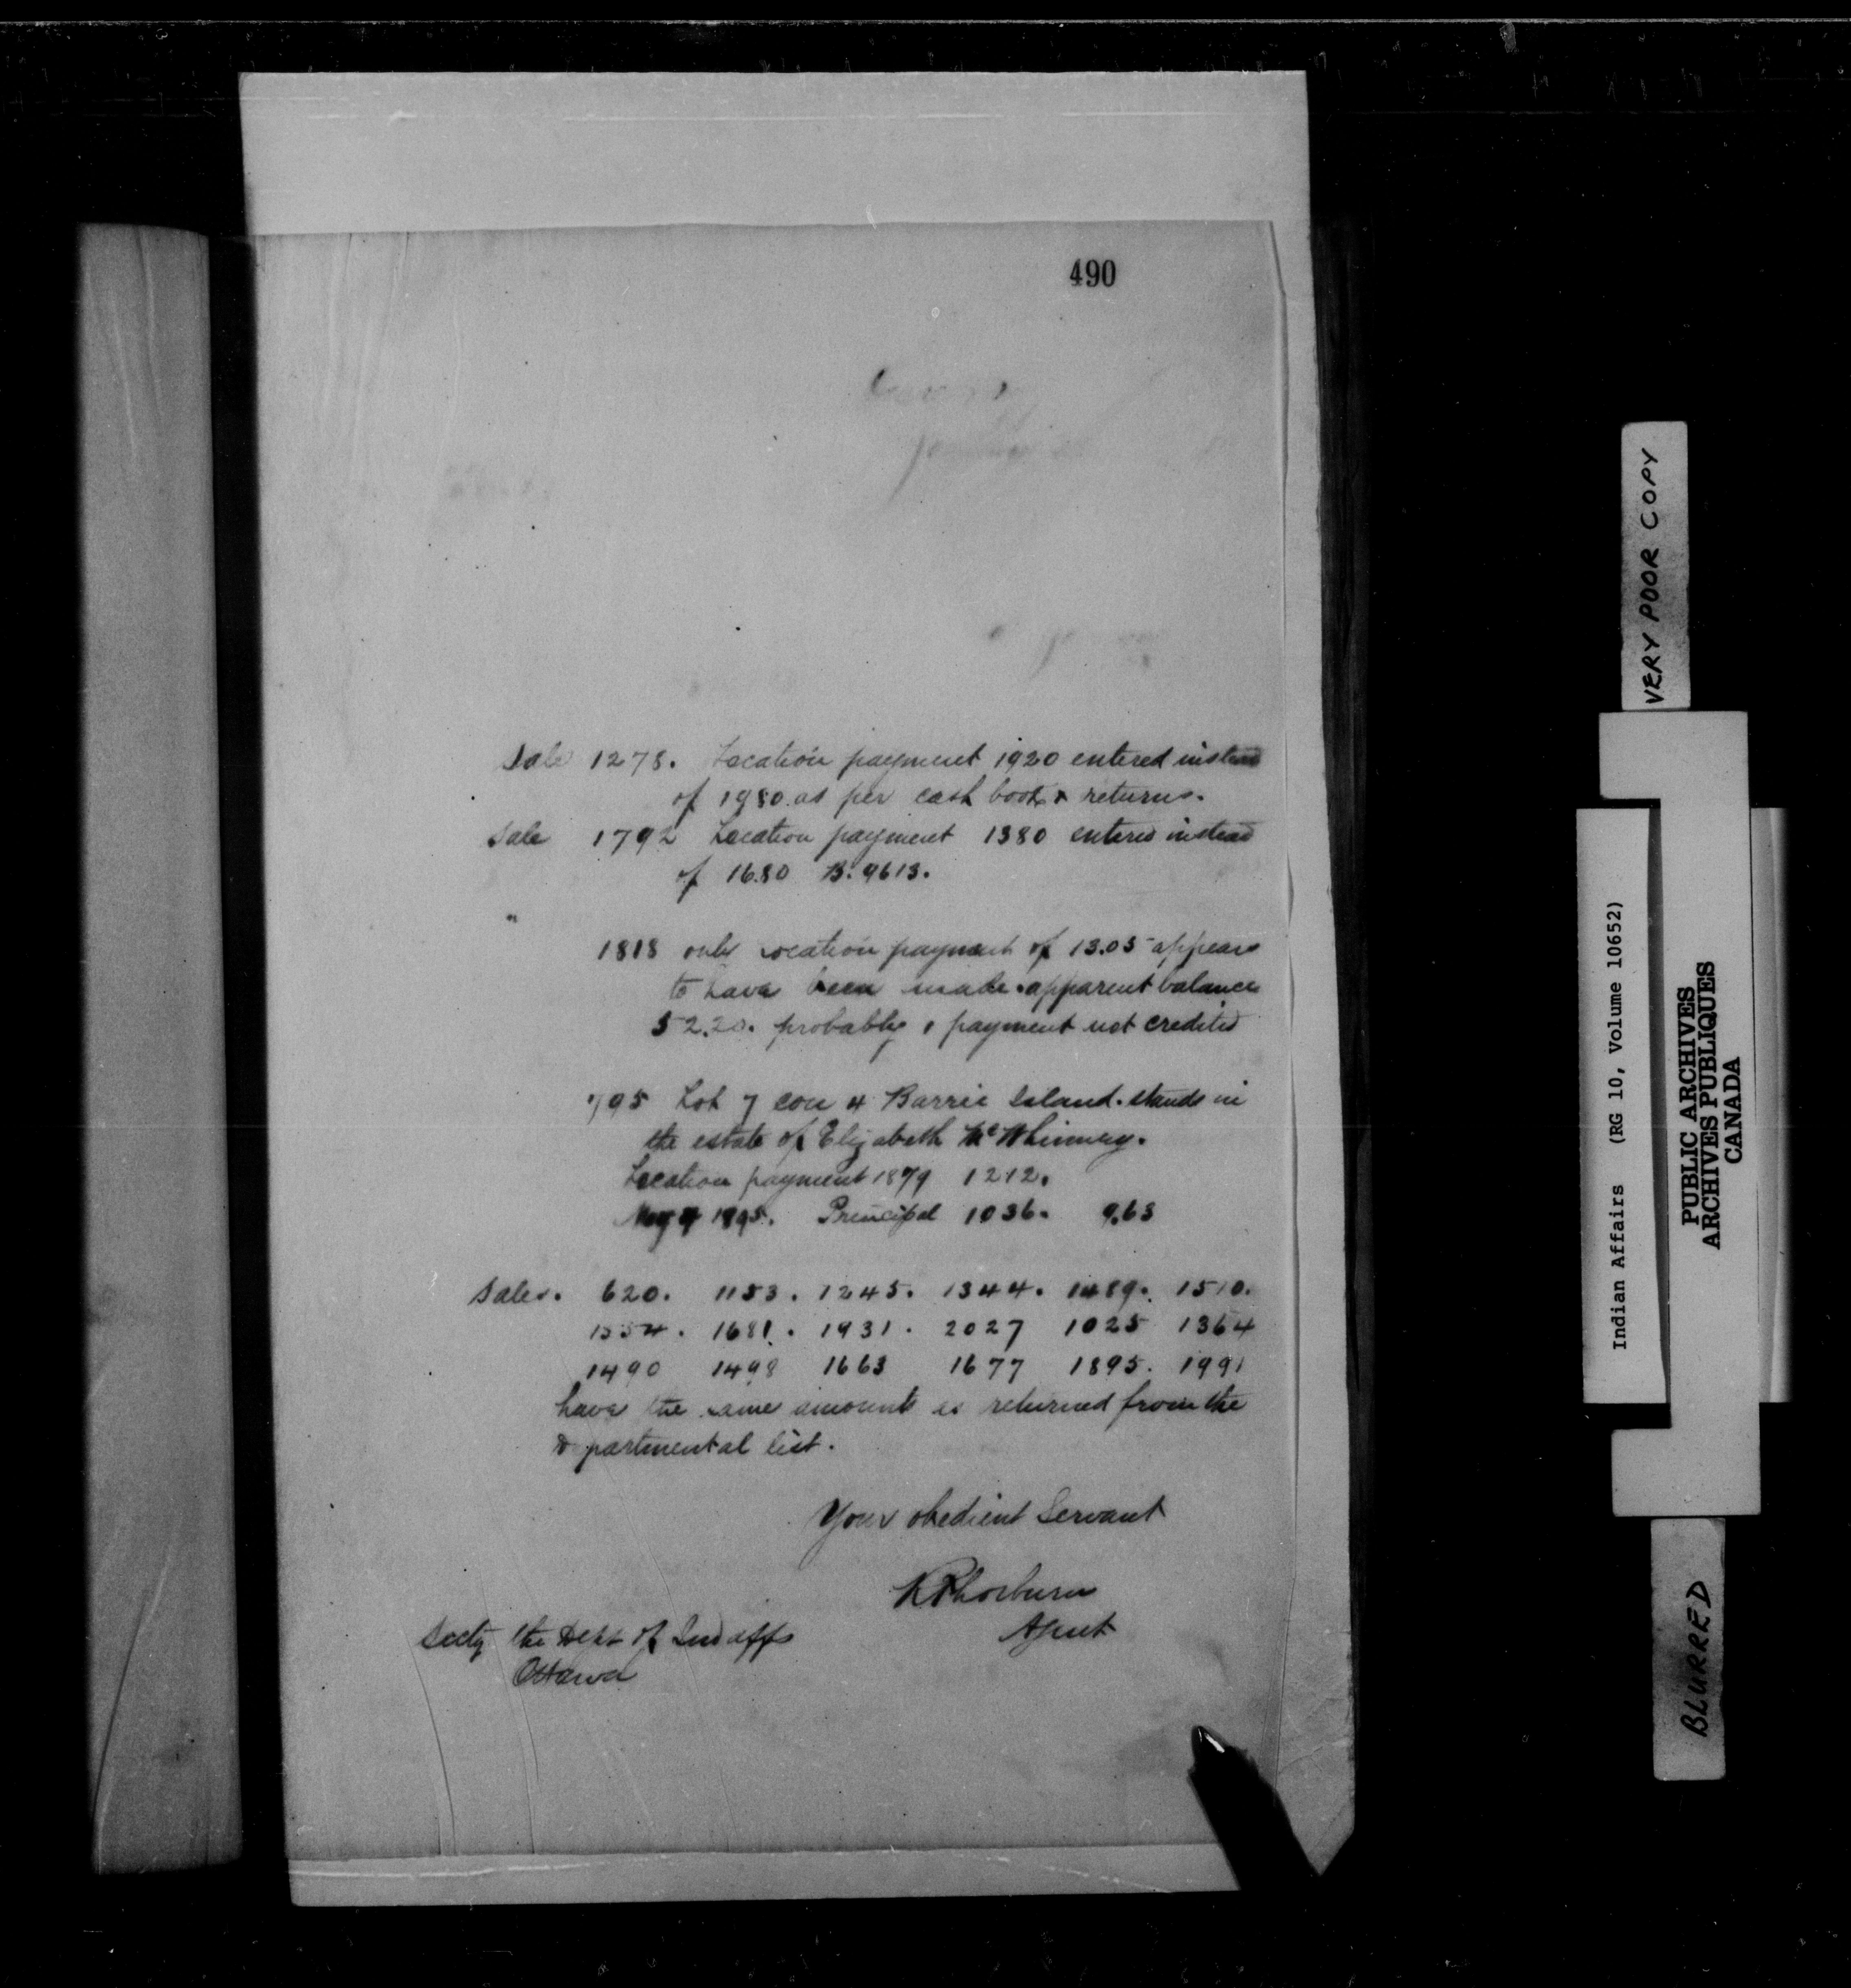 490
Sale 1278. Location payment 1920 entered instead
of 1980. as per cash book & returns.
Sale 1792 Location payment 1380 entered instead
of 16.80 B. 9613.
"
1818 only location payment of 13.05 appears
to have been made. apparent balance
52.20. probably 1 payment not credited
795 Lot 7 con 4 Barrie Island. stands in
the estate of Elizabeth McWhinney.
Location payment 1879 1212.
May 9 1895. Principal 1036. 9.63
Sales. 620. 1153. 1245. 1344. 1489. 1510.
1554. 1681. 1931. 2027 1025 1364
1490 1498 1663 1677 1895. 1991
have the same amounts as returned from the
departmental list.
Your obedient Servant
R Thorburn
Agent
Secty the Dept of Ind Affs
Ottawa
VERY POOR COPY
Indian Affairs (RG 10, Volume 10652)
PUBLIC ARCHIVES
ARCHIVES PUBLIQUES
CANADA
BLURRED